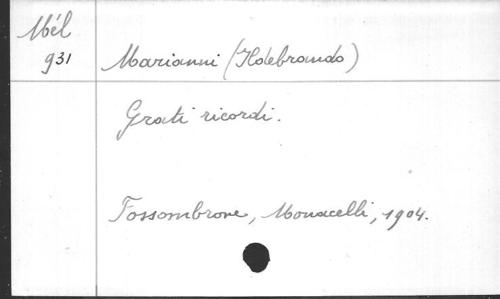 Mél
931
Marianni (Ildebrando)
Grati ricordi.
Fossombrone, Monacelli, 1904.